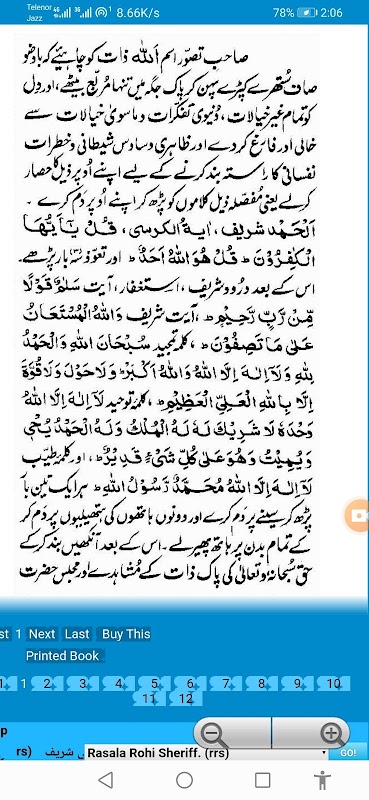 Telenor
Jazz
4G
3G
1
8.66K/s
78%
2:06
صاحب تصوّر اسم اَللّٰہ ذات کو چاہئیے کہ باوضو
صاف ستھرے کپڑے پہن کر پاک جگہ میں تنہا مربّع بیٹھے، اور دِل
کو تمام غیر خیالات، دُنیوی تفکّرات و ماسویٰ خیالات سے
خالی اور فارغ کر دے اور ظاہری وساوسِ شیطانی و خطراتِ
نفسانی کا راستہ بند کرنے کے لیے اپنے اُوپر ذیل کا حصار
کرلے یعنی مُفصلہ ذیل کلاموں کو پڑھ کر اپنے اُوپر دَم کرے۔
اَلْحَمْد شریف، اٰیۃ الکرسی، قُلْ یٰٓاَیُّھَا
الْکٰفِرُوْنَ ط قُلْ ھُوَ اللّٰہُ اَحَدٌ ط اور تعوّذ تین بار پڑھے۔
اس کے بعد درود شریف، استغفار، آیت سَلٰمٌ قَوْلًا
مِّنْ رَّبٍّ رَّحِیْمٍ ط، آیت شریف وَاللّٰہُ الْمُسْتَعَانُ
عَلٰی مَا تَصِفُوْنَ ط، کلمہ تمجید سُبْحَانَ اللّٰہِ وَالْحَمْدُ
لِلّٰہِ وَلَآ اِلٰہَ اِلَّا اللّٰہُ وَاللّٰہُ اَکْبَرُ ط وَلَا حَوْلَ وَلَا قُوَّةَ
اِلَّا بِاللّٰہِ الْعَلِیِّ الْعَظِیْمِ ط، کلمہ توحید لَآ اِلٰہَ اِلَّا اللّٰہُ
وَحْدَہٗ لَا شَرِیْكَ لَہٗ لَہُ الْمُلْكُ وَلَہُ الْحَمْدُ یُحْیٖ
وَیُمِیْتُ وَھُوَ عَلٰی کُلِّ شَیْءٍ قَدِیْرٌ ط، اور کلمہ طیّب
لَآ اِلٰہَ اِلَّا اللّٰہُ مُحَمَّدٌ رَّسُوْلُ اللّٰہِ ط ہر ایک تین بار
پڑھ کر سینے پر دَم کرے اور دونوں ہاتھوں کی ہتھیلیوں پر دَم کر
کے تمام بدن پر ہاتھ پھیر لے۔ اس کے بعد آنکھیں بند کر کے
حق سُبحانہٗ وتعالیٰ کی پاک ذات کے مُشاہدے اور مجلس حضرت
st 1 Next Last Buy This
Printed Book
1 2 3 4 5 6 7 8 9 10
11 12
p
rs) ی شریف
Rasala Rohi Sheriff. (rrs)
GO!